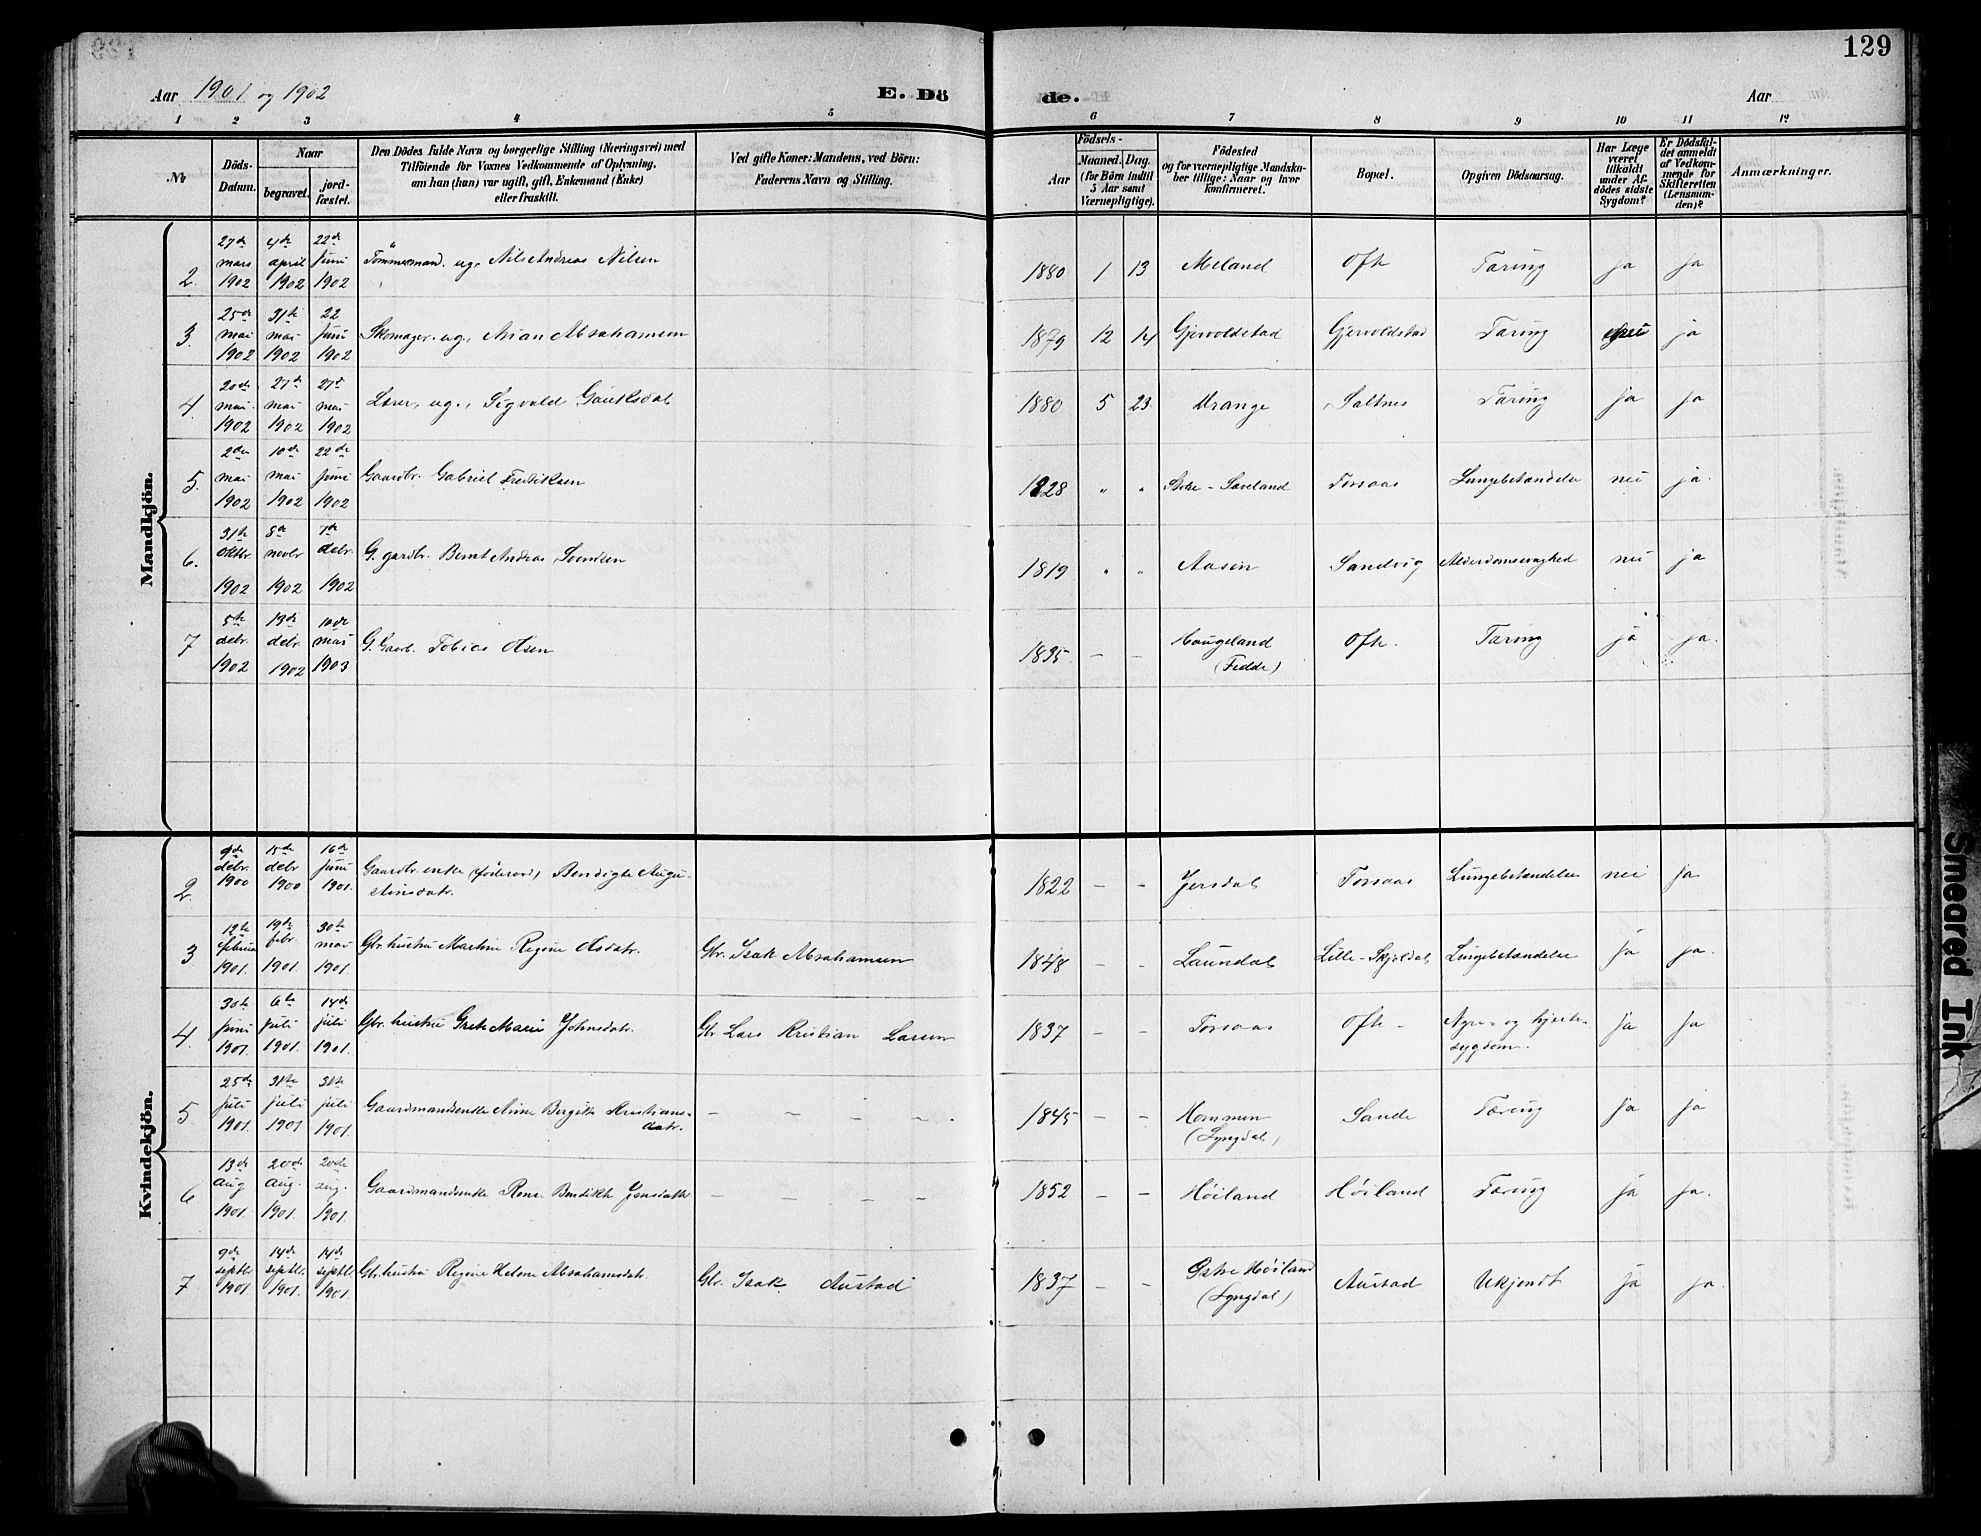 129
Aar 1901 og 1902
E. Dö
de.
Aar
1 2 3 4 5 6 7 8 9 10 11 12
No
Döds-
Datum.
Naar
begravet.
jord-
fæstet.
Den Dödes fulde Navn og borgerlige Stilling (Næringsvei) med
Tilföiende for Voxnes Vedkommende af Oplysning,
om han (hun) var ugift, gift, Enkemand (Enke)
eller fraskilt.
Ved gifte Koner: Mandens, ved Börn:
Faderens Navn og Stilling.
Födsels-
Aar
Maaned. Dag.
(for Börn indtil
5 Aar samt
Værnepligtige).
Födested
og for værnepligtige Mandska-
ber tillige: Naar og hvor
konfirmeret.
Bopæl.
Opgiven Dödsaarsag.
Har Læge
været
tilkaldt
under Af-
dödes sidste
Sygdom?
Er Dödsfal-
det anmeldt
af Vedkom-
mende for
Skifteretten
(Lensman-
den)?
Anmærkninger.
Mandkjön.
2. 27de mars 1902 4de april 1902 22de juni 1902 Tömmermand. ug. Nils Andreas Nilsen 1880 1 13 Meland Ofte Tæring ja ja
3. 25de mai 1902 31te mai 1902 22 juni 1902 Skomager. ug., Asian Abrahamsen 1879 12 14 Gjervoldstad Gjervoldstad Tæring nei ja
4. 20de mai 1902 27de mai 1902 27de mai 1902 Lærer, ug., Sigvald Gauksdal 1880 5 23. Urange Saltnes Tæring ja ja
5. 2den mai 1902 10de mai 1902 22de juni 1902 Gaardbr. Gabriel Fredriksen 1828 " " Store-Sæveland Torsaas Lungebetændelse nei ja.
6. 31te oktbr. 1902 8de novbr 1902 7de debr. 1902 G. gardbr. Bernt Andreas Svendsen 1819 " " Aasen Sandvig Alderdomssvaghed nei ja
7 5te debr. 1902 13de debr. 1902 10de mai 1903 G. Gaardb. Tobias Olsen 1835 – – Haugeland (Fedde) Ofte. Tæring ja ja.
Kvindekjön.
2. 9de debr. 1900 15de debr 1900 16de juni 1901. Gaardbr. enke (föderaad) Bendigte Augu-
stinsdatr. 1822 – – Jersdal Torsaas Lungebetændelse nei ja
3 12te februar 1901. 19de febr. 1901. 30te mai 1901. Gbr. hustru Martine Regine Olsdatr. Gbr. Isak Abrahamsen 1848 – – Laundal Lille-Skjoldal Lungebetændelse ja ja.
4. 30te juni 1901. 6te juli 1901. 14de juli 1901. Gbr. hustru Grete Marie Johnsdatr. Gbr. Lars Kristian Larsen 1837 – – Torsaas Ofte – Nyre- og hjerte-
sygdom. ja ja
5 25de juli 1901. 31te juli 1901 31te juli 1901. Gaardmandsenke Anne Bergitte Kristians-
datr. – – – – – 1845 – – Hommen (Lyngdal) Sande Tæring ja ja
6 13de aug 1901. 20de aug. 1901. 20de aug. 1901. Gaardmandsenke Rense Bendikte Jensdatr – – – – 1852 – – Höiland Höiland Tæring ja ja.
7 9de septbr 1901. 14de septbr. 1901. 14de septbr 1901. Gbr. hustru Regine Helene Abrahamsdatr. Gbr. Isak Austad 1837 – – Östre Höiland (Lyngdal) Austad Ukjendt ja ja.
Smeared Ink